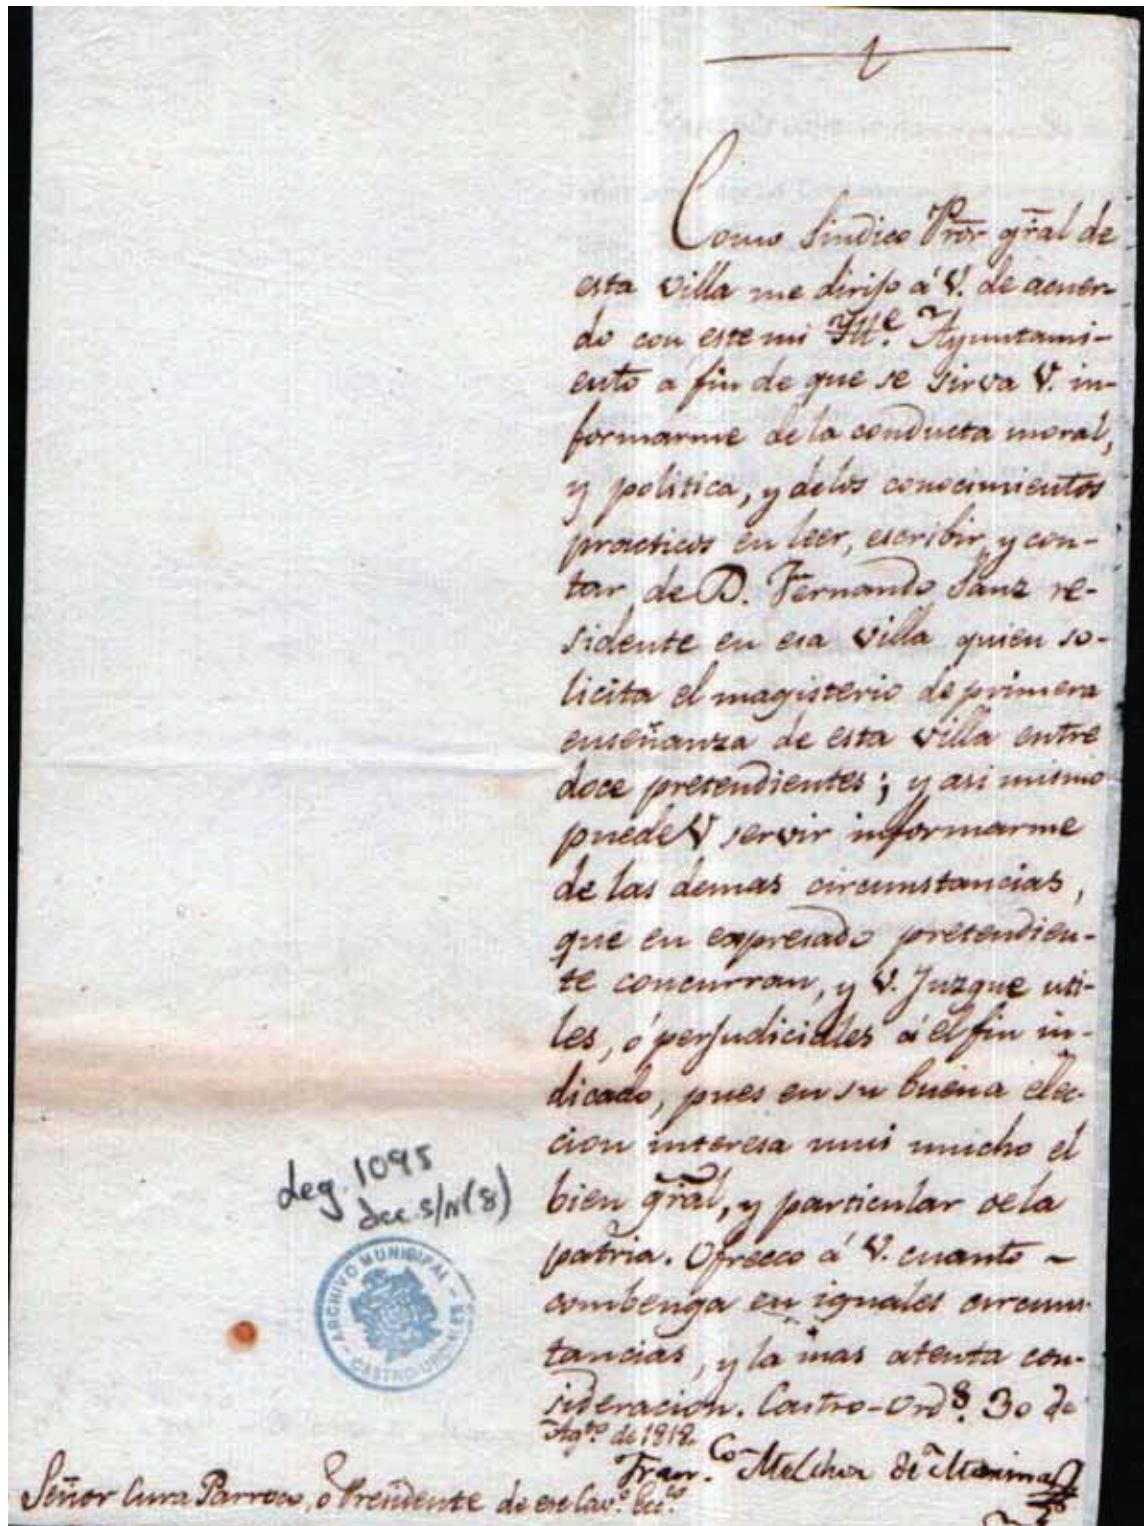 Como Sindico Pror gral de
esta villa me dirijo á V. de acuer-
do con este mi Ille. Ayuntami-
ento a fin de que se sirva V. in-
formarme de la conducta moral,
y politica, y delos conocimientos
practicos en leer, escribir, y con-
tar de D. Fernando Sanz re-
sidente en esa villa quien so-
licita el magisterio de primera
enseñanza de esta villa entre
doce pretendientes; y asi mismo
puede V servir informarme
de las demas circunstancias,
que en expresado pretendien-
te concurran, y V. Juzgue uti-
les, ó perjudiciales á el fin in-
dicado, pues en su buena elec-
cion interesa mui mucho el
bien gral, y particular dela
patria. Ofrezco á V. cuanto
combenga en iguales circuns-
tancias, y la mas atenta con-
sideracion. Castro-Ords. 30 de
Agto de 1818.
Franco. Melchor de
Señor Cura Parroco, o Presidente de ese Cavo. Ecco.
Leg. 1095
doc. s/n (8)
ARCHIVO MUNICIPAL
CASTRO-URDIALES